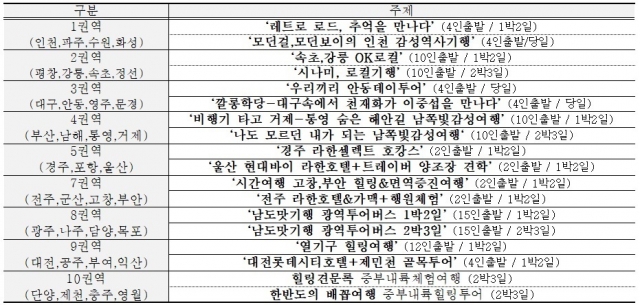 구분 주제
1권역 '레트로 로드, 추억을 만나다' (4인출발 / 1박2일)
(인천,파주,수원,화성) '모던걸,모던보이의 인천 감성역사기행' (4인출발/당일)
2권역 '속초,강릉 OK로컬' (10인출발 / 1박2일)
(평창,강릉,속초,정선) '시나미, 로컬기행' (10인출발 / 2박3일)
3권역 '우리끼리 안동데이투어' (4인출발 / 당일)
(대구,안동,영주,문경) '깔롱학당-대구속에서 천재화가 이중섭을 만나다' (4인출발 / 당일)
4권역 '비행기 타고 거제-통영 숨은 해안길 남쪽빛감성여행' (10인출발 / 1박2일)
(부산,남해,통영,거제) '나도 모르던 내가 되는 남쪽빛감성여행' (10인출발 / 2박3일)
5권역 '경주 라한셀렉트 호캉스' (2인출발 / 1박2일)
(경주,포항,울산) '울산 현대바이 라한호텔+트레이버 양조장 견학' (2인출발 / 1박2일)
7권역 '시간여행 고창,부안 힐링&면역증진여행' (2인출발 / 1박2일)
(전주,군산,고창,부안) '전주 라한호텔&가맥+행원체험' (2인출발 / 1박2일)
8권역 '남도맛기행 광역투어버스 1박2일' (15인출발 / 1박2일)
(광주,나주,담양,목포) '남도맛기행 광역투어버스 2박3일' (15인출발 / 2박3일)
9권역 '열기구 힐링여행' (12인출발 / 1박2일)
(대전,공주,부여,익산) '대전롯데시티호텔+제민천 골목투어' (4인출발 / 1박2일)
10권역 힐링견문록 중부내륙체험여행 (2박3일)
(단양,제천,충주,영월) 한반도의 배꼽여행 중부내륙힐링투어 (2박3일)